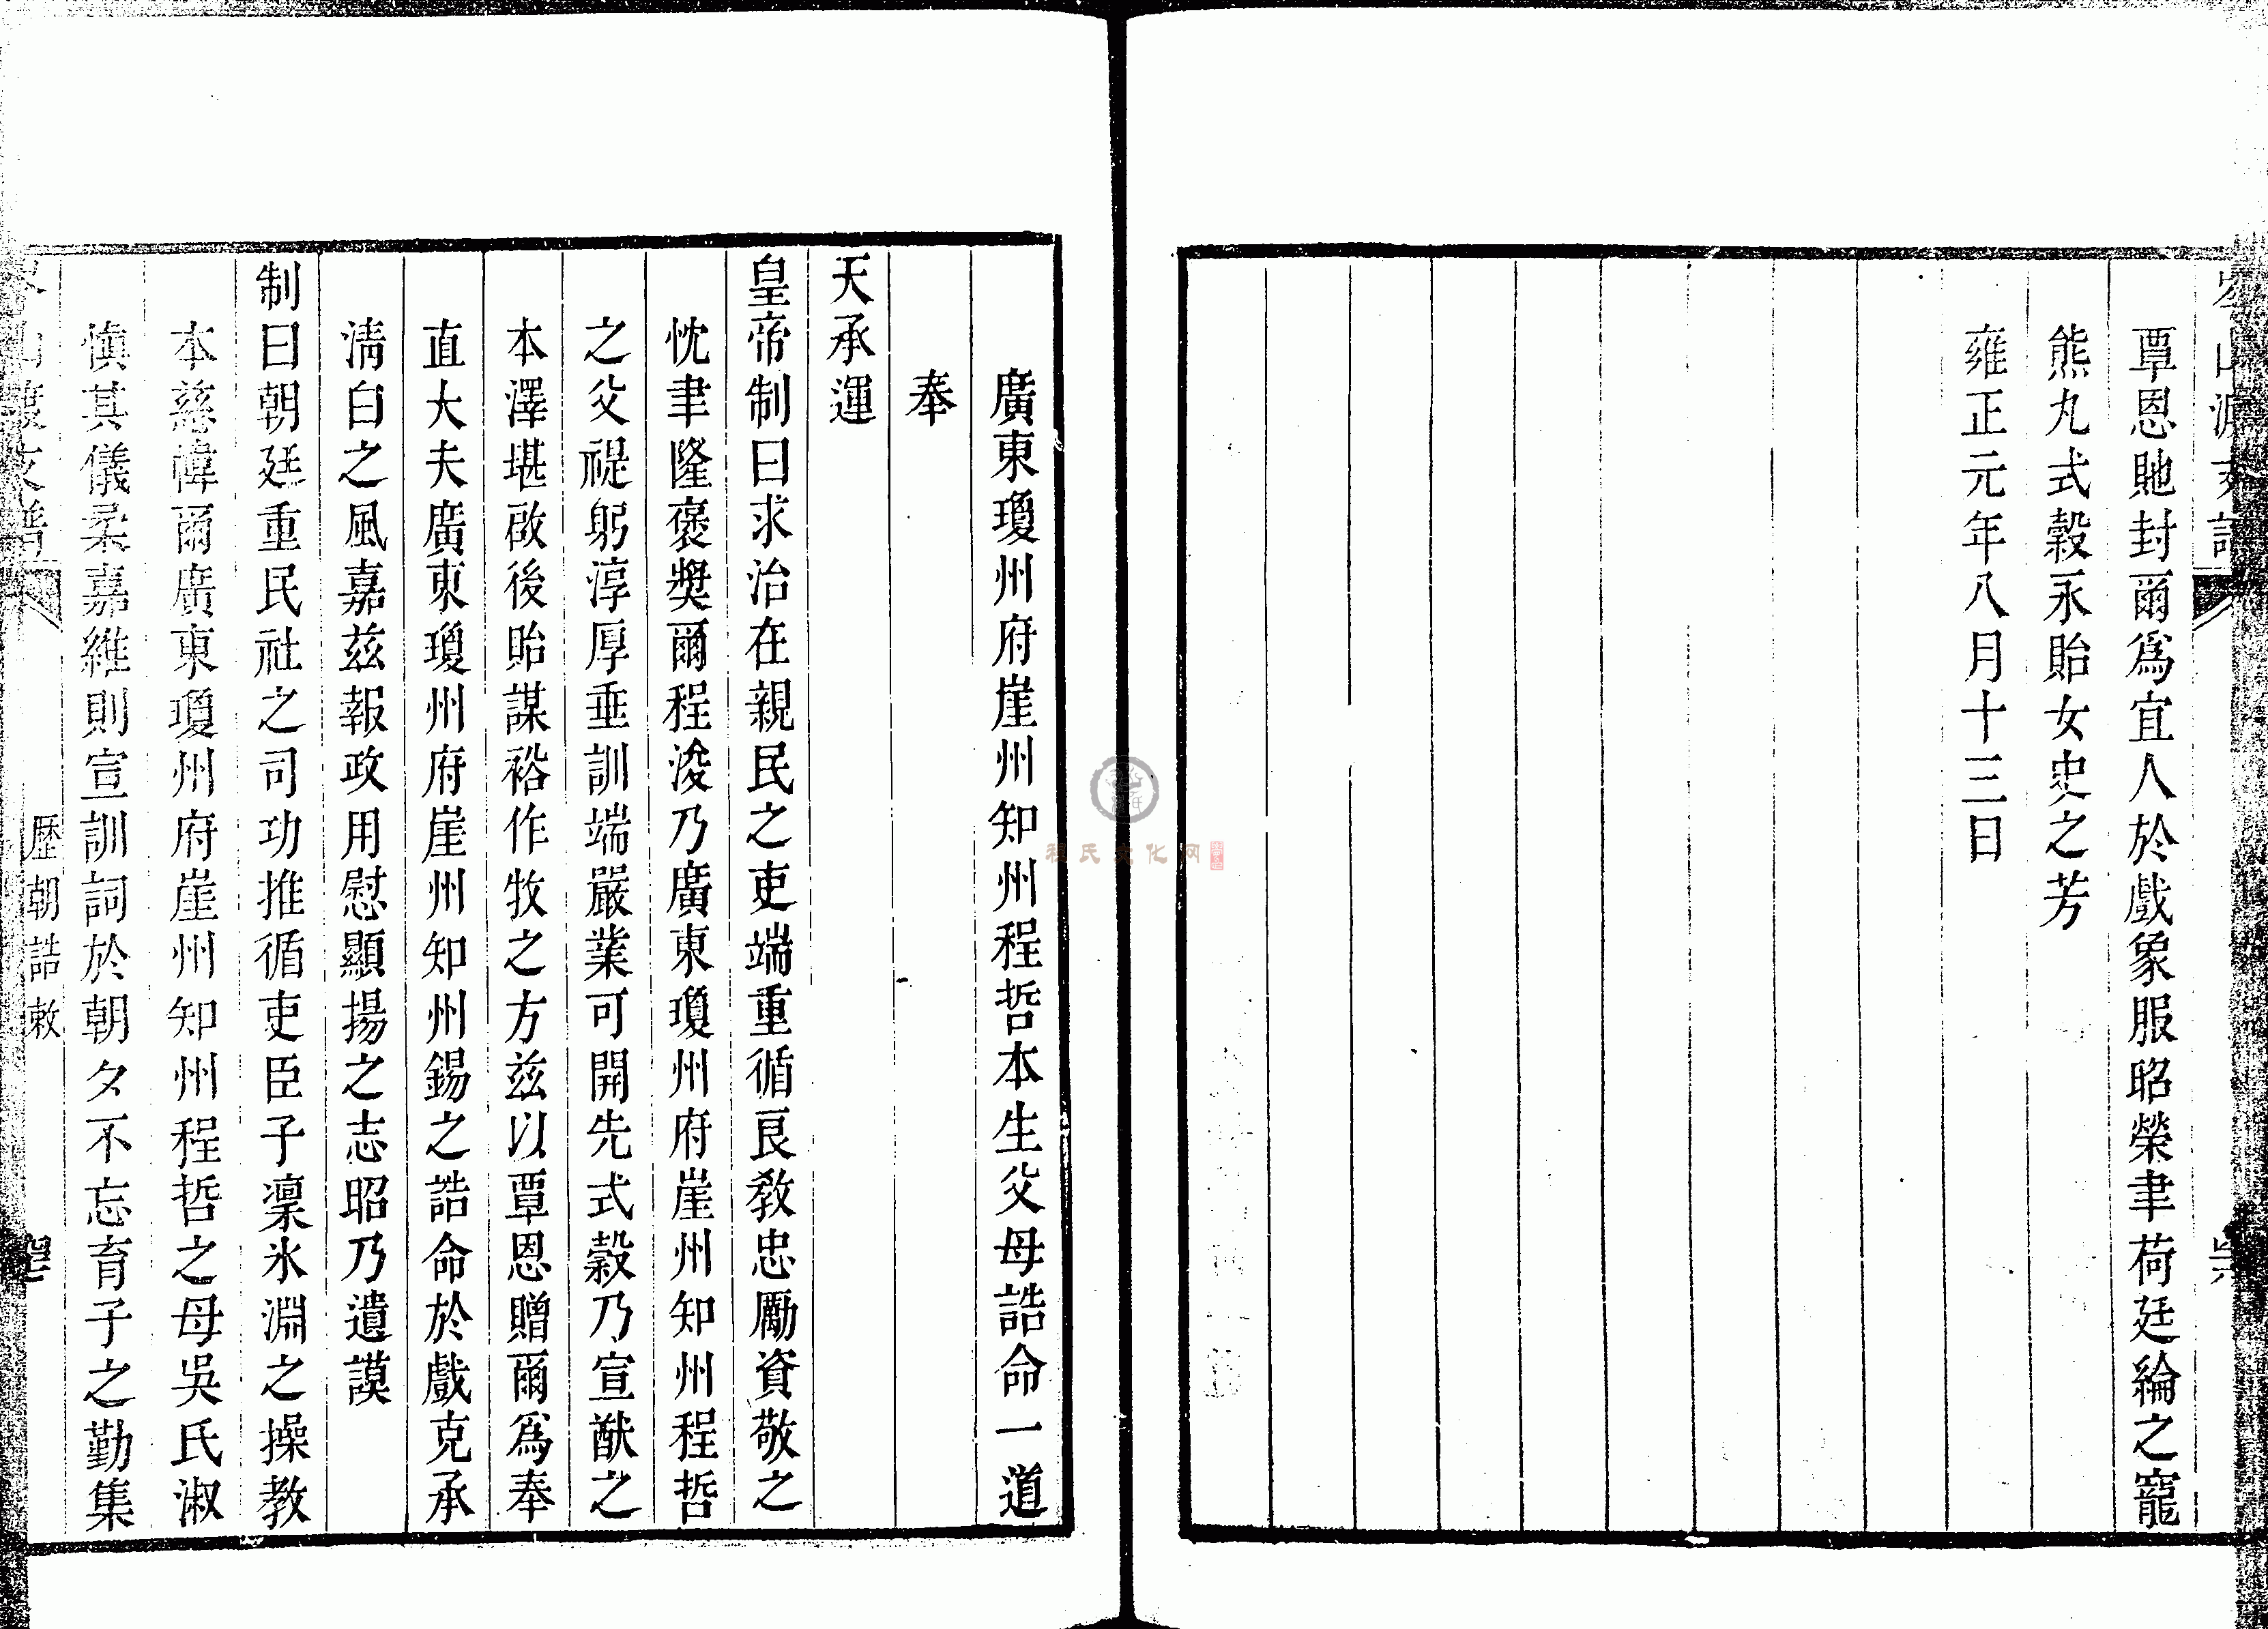 覃恩貤封爾爲宜人於戲象服昭榮聿荷廷綸之寵
熊丸式穀永貽女史之芳
雍正元年八月十三日
廣東瓊州府崖州知州程哲本生父母誥命一道
奉
天承運
皇帝制曰求治在親民之吏端重循良教忠勵資敬之
忱聿隆褒奬爾程浚乃廣東瓊州府崖州知州程哲
之父禔躬淳厚垂訓端嚴業可開先式穀乃宣猷之
本澤堪啟後貽謀裕作牧之方兹以覃恩贈爾爲奉
直大夫廣東瓊州府崖州知州錫之誥命於戲克承
清白之風嘉兹報政用慰顯揚之志昭乃遺謨
制曰朝廷重民社之司功推循吏臣子凜氷淵之操教
本慈幃爾廣東瓊州府崖州知州程哲之母吳氏淑
慎其儀柔嘉維則宣訓詞於朝夕不忘育子之勤集
歷朝誥敕
程氏文化网